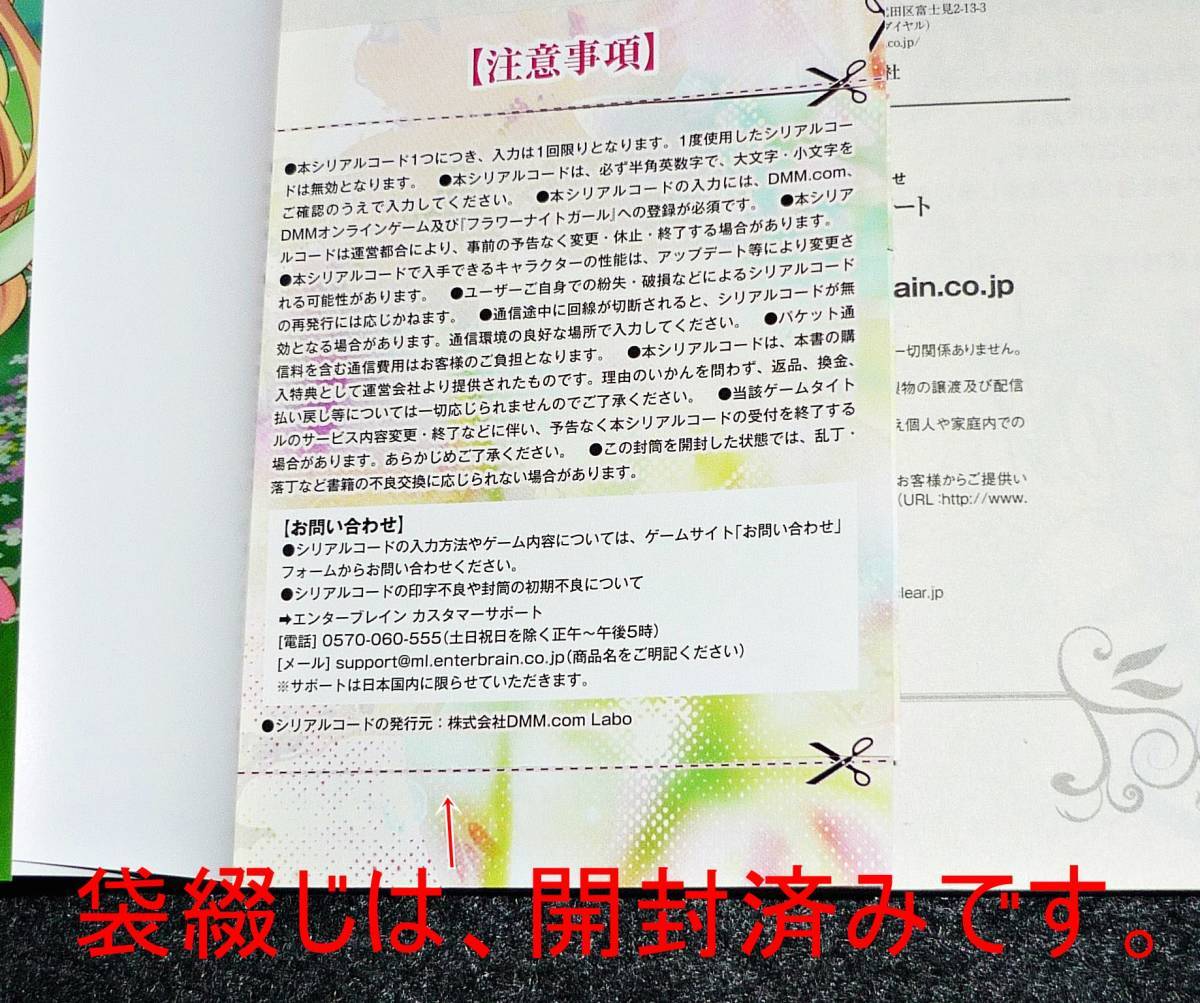 【注意事項】
●本シリアルコード1つにつき、入力は1回限りとなります。1度使用したシリアルコー
ドは無効となります。 ●本シリアルコードは、必ず半角英数字で、大文字・小文字を
ご確認のうえで入力してください。 ●本シリアルコードの入力には、DMM.com、
DMMオンラインゲーム及び『フラワーナイトガール』への登録が必須です。 ●本シリア
ルコードは運営都合により、事前の予告なく変更・休止・終了する場合があります。
●本シリアルコードで入手できるキャラクターの性能は、アップデート等により変更さ
れる可能性があります。 ●ユーザーご自身での紛失・破損などによるシリアルコード
の再発行には応じかねます。 ●通信途中に回線が切断されると、シリアルコードが無
効となる場合があります。通信環境の良好な場所で入力してください。 ●パケット通
信料を含む通信費用はお客様のご負担となります。 ●本シリアルコードは、本書の購
入特典として運営会社より提供されたものです。理由のいかんを問わず、返品、換金、
払い戻し等については一切応じられませんのでご了承ください。 ●当該ゲームタイト
ルのサービス内容変更・終了などに伴い、予告なく本シリアルコードの受付を終了する
場合があります。あらかじめご了承ください。 ●この封筒を開封した状態では、乱丁・
落丁など書籍の不良交換に応じられない場合があります。
【お問い合わせ】
●シリアルコードの入力方法やゲーム内容については、ゲームサイト「お問い合わせ」
フォームからお問い合わせください。
●シリアルコードの印字不良や封筒の初期不良について
➡エンターブレイン カスタマーサポート
[電話] 0570-060-555(土日祝日を除く正午～午後5時)
[メール] support@ml.enterbrain.co.jp(商品名をご明記ください)
※サポートは日本国内に限らせていただきます。
●シリアルコードの発行元：株式会社DMM.com Labo
田区富士見2-13-3
ダイヤル)
.co.jp/
社
せ
ート
ain.co.jp
一切関係ありません。
物の譲渡及び配信
え個人や家庭内での
お客様からご提供い
(URL:http://www.
lear.jp
袋綴じは、開封済みです。